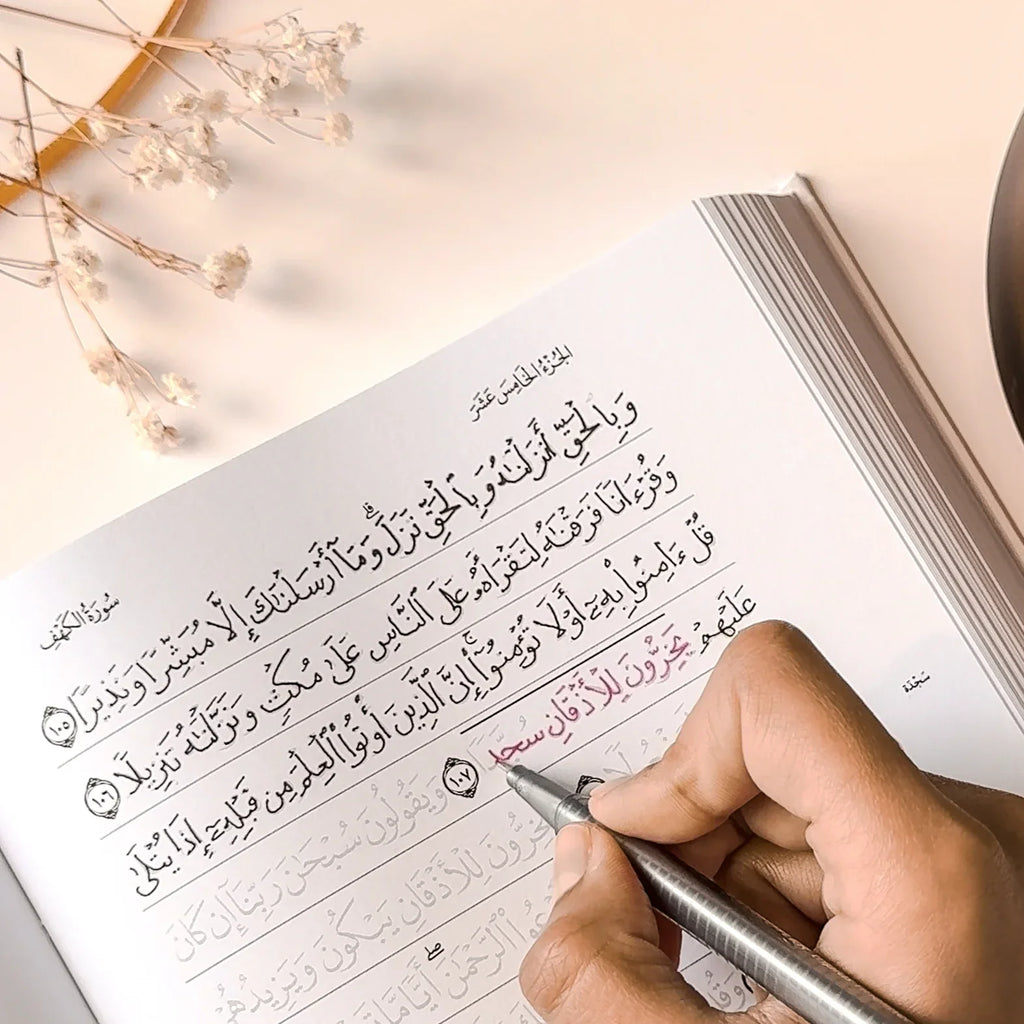 الجُزْءُ الخَامِسَ عَشَرَ
سُورَةُ الكَهْفِ
وَبِٱلْحَقِّ أَنزَلْنَٰهُ وَبِٱلْحَقِّ نَزَلَ ۗ وَمَآ أَرْسَلْنَٰكَ إِلَّا مُبَشِّرًا وَنَذِيرًا ١٠٥
وَقُرْءَانًا فَرَقْنَٰهُ لِتَقْرَأَهُۥ عَلَى ٱلنَّاسِ عَلَىٰ مُكْثٍ وَنَزَّلْنَٰهُ تَنزِيلًا ١٠٦
قُلْ ءَامِنُوا۟ بِهِۦٓ أَوْ لَا تُؤْمِنُوٓا۟ ۚ إِنَّ ٱلَّذِينَ أُوتُوا۟ ٱلْعِلْمَ مِن قَبْلِهِۦٓ إِذَا يُتْلَىٰ
عَلَيْهِمْ يَخِرُّونَ لِلْأَذْقَانِ سجد ١٠٧ وَيَقُولُونَ سُبْحَٰنَ رَبِّنَآ إِن كَانَ
سَجْدَة
لِلْأَذْقَانِ يَبْكُونَ وَيَزِيدُهُمْ
ٱلرَّحْمَٰنَ ۖ أَيًّا مَّا